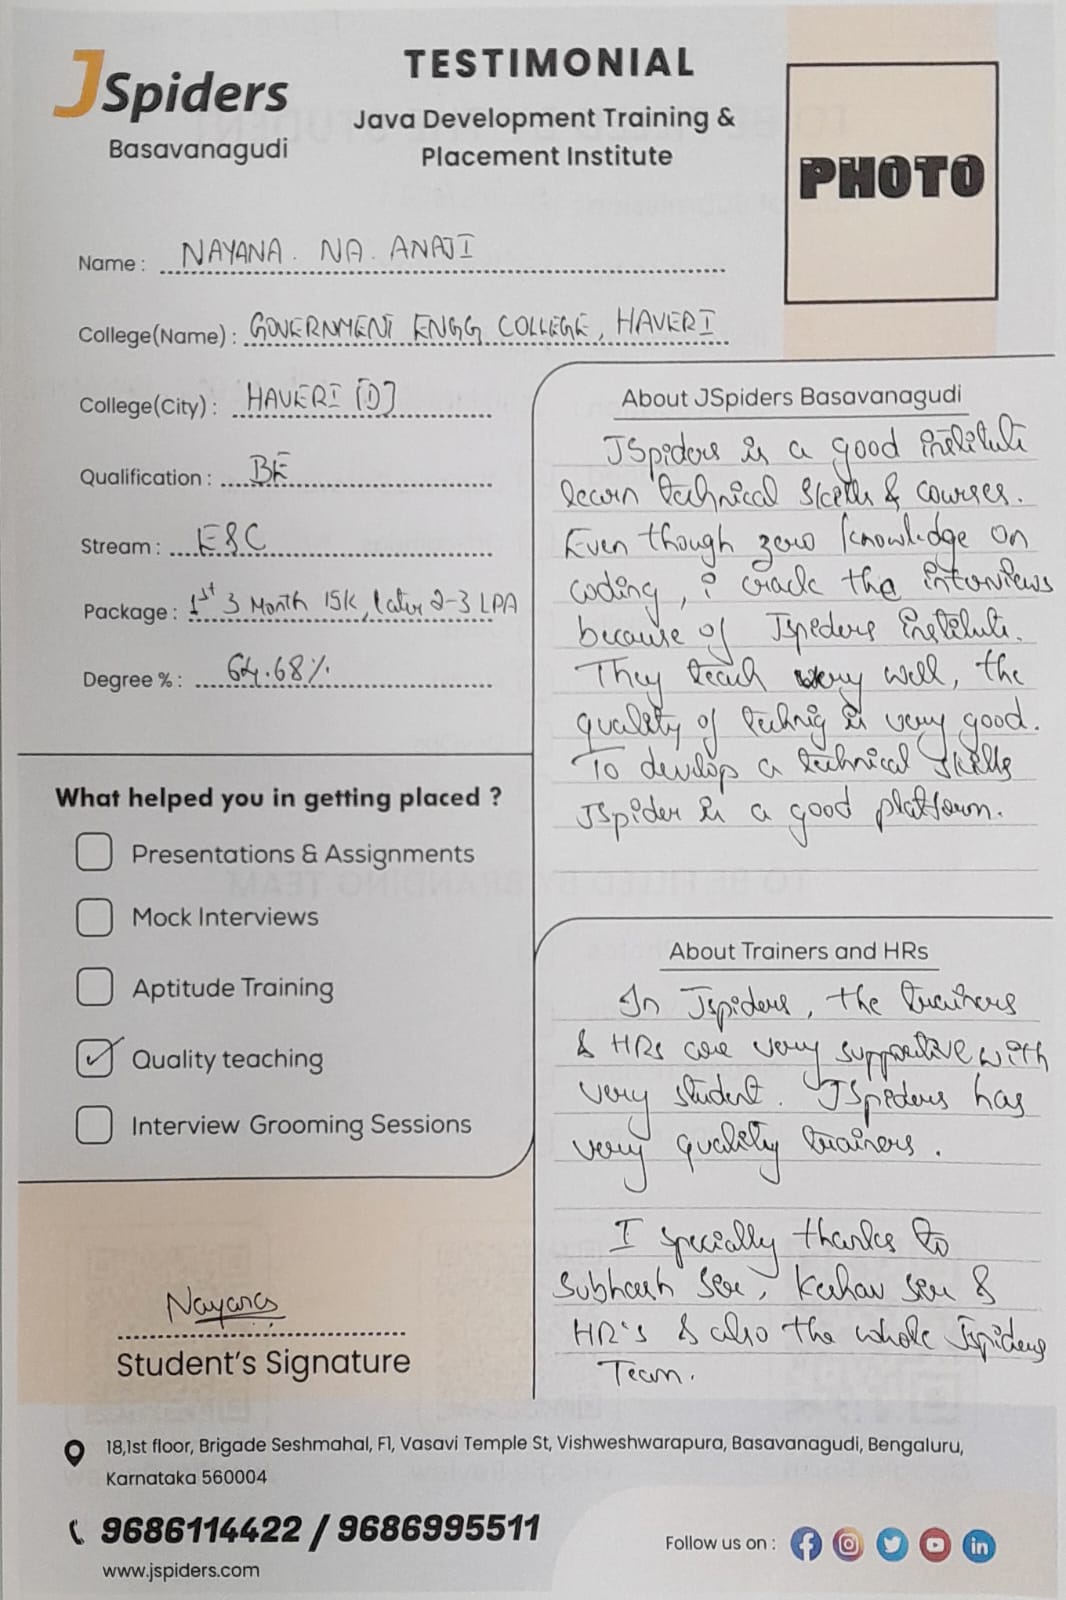 JSpiders
Basavanagudi
TESTIMONIAL
Java Development Training &
Placement Institute
PHOTO
Name : NAYANA. NA. ANAJI
College(Name) : GOVERNMENT ENGG COLLEGE, HAVERI
College(City) : HAVERI [D]
Qualification : BE
Stream : E&C
Package : 1st 3 Month 15K, later 2-3 LPA
Degree % : 64.68%
What helped you in getting placed ?
Presentations & Assignments
Mock Interviews
Aptitude Training
Quality teaching
Interview Grooming Sessions
Nayana
Student's Signature
About JSpiders Basavanagudi
JSpiders is a good institute
learn technical skills & courses.
Even though zero knowledge on
coding, i crack the interviews
because of Jspiders institute.
They teach very well, the
quality of is very good.
To develop a technical skills
JSpider is a good platform.
About Trainers and HRs
In Jspiders, the trainers
& HRs are very supportive with
very student. JSpiders has
very quality trainers.
I specially thanks to
Subhash Sir, Keshav Sir &
HR's & also the whole Jspiders
Team.
18,1st floor, Brigade Seshmahal, F1, Vasavi Temple St, Vishweshwarapura, Basavanagudi, Bengaluru,
Karnataka 560004
9686114422 / 9686995511
www.jspiders.com
Follow us on :